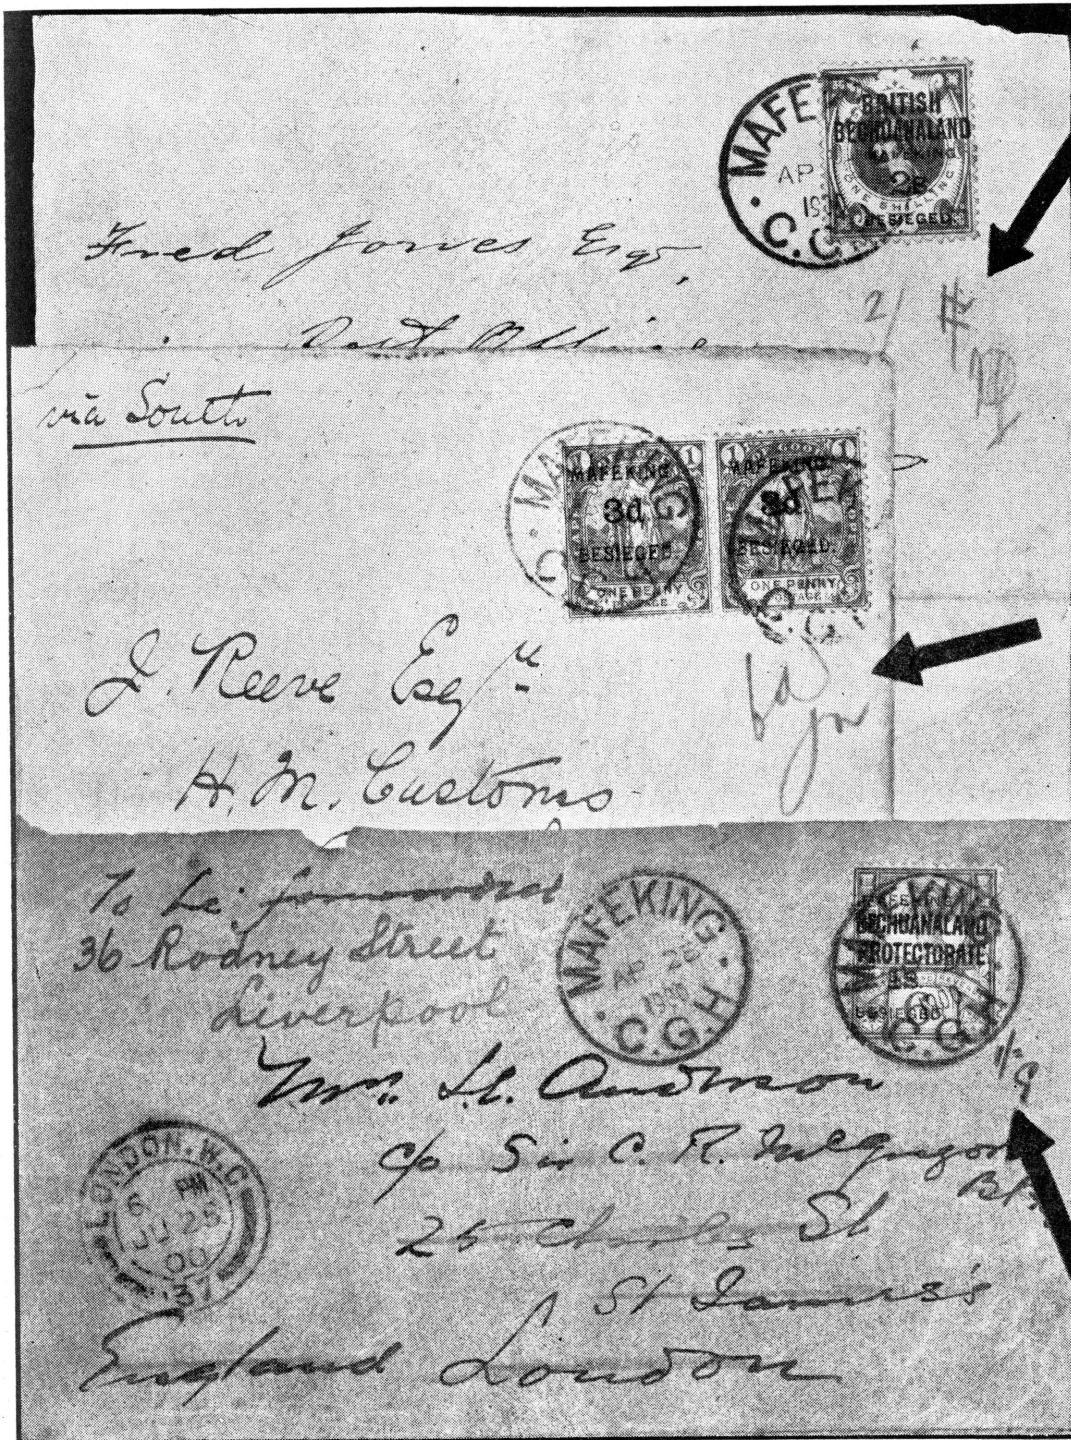 MAFE
AP
19
C.G
BRITISH
BECHUANALAND
MAFEKING
2s
ONE SHILLING
BESIEGED.
Fred Jones Esq,
2/
via South
MAFEKING
C.
1 1
MAFEKING.
3d
BESIEGED.
ONE PENNY
POSTAGE
1 1
MAFEKING.
3d
BESIEGED.
ONE PENNY
POSTAGE
MAFEK
C.G.
J. Reeve Esqre
H. M. Customs
To be forwarded
36 Rodney Street
Liverpool
MAFEKING
AP 26
1900
C.G.H
MAFEKING
BECHUANALAND
PROTECTORATE
1s
BESIEGED.
C.G.H
1/-
Mrs. Anderson
c/o Sir C. R. McGregor
Bt.
25 Charles St
St James's
England London
LONDON. W.C
6 PM
JU 25
00
37